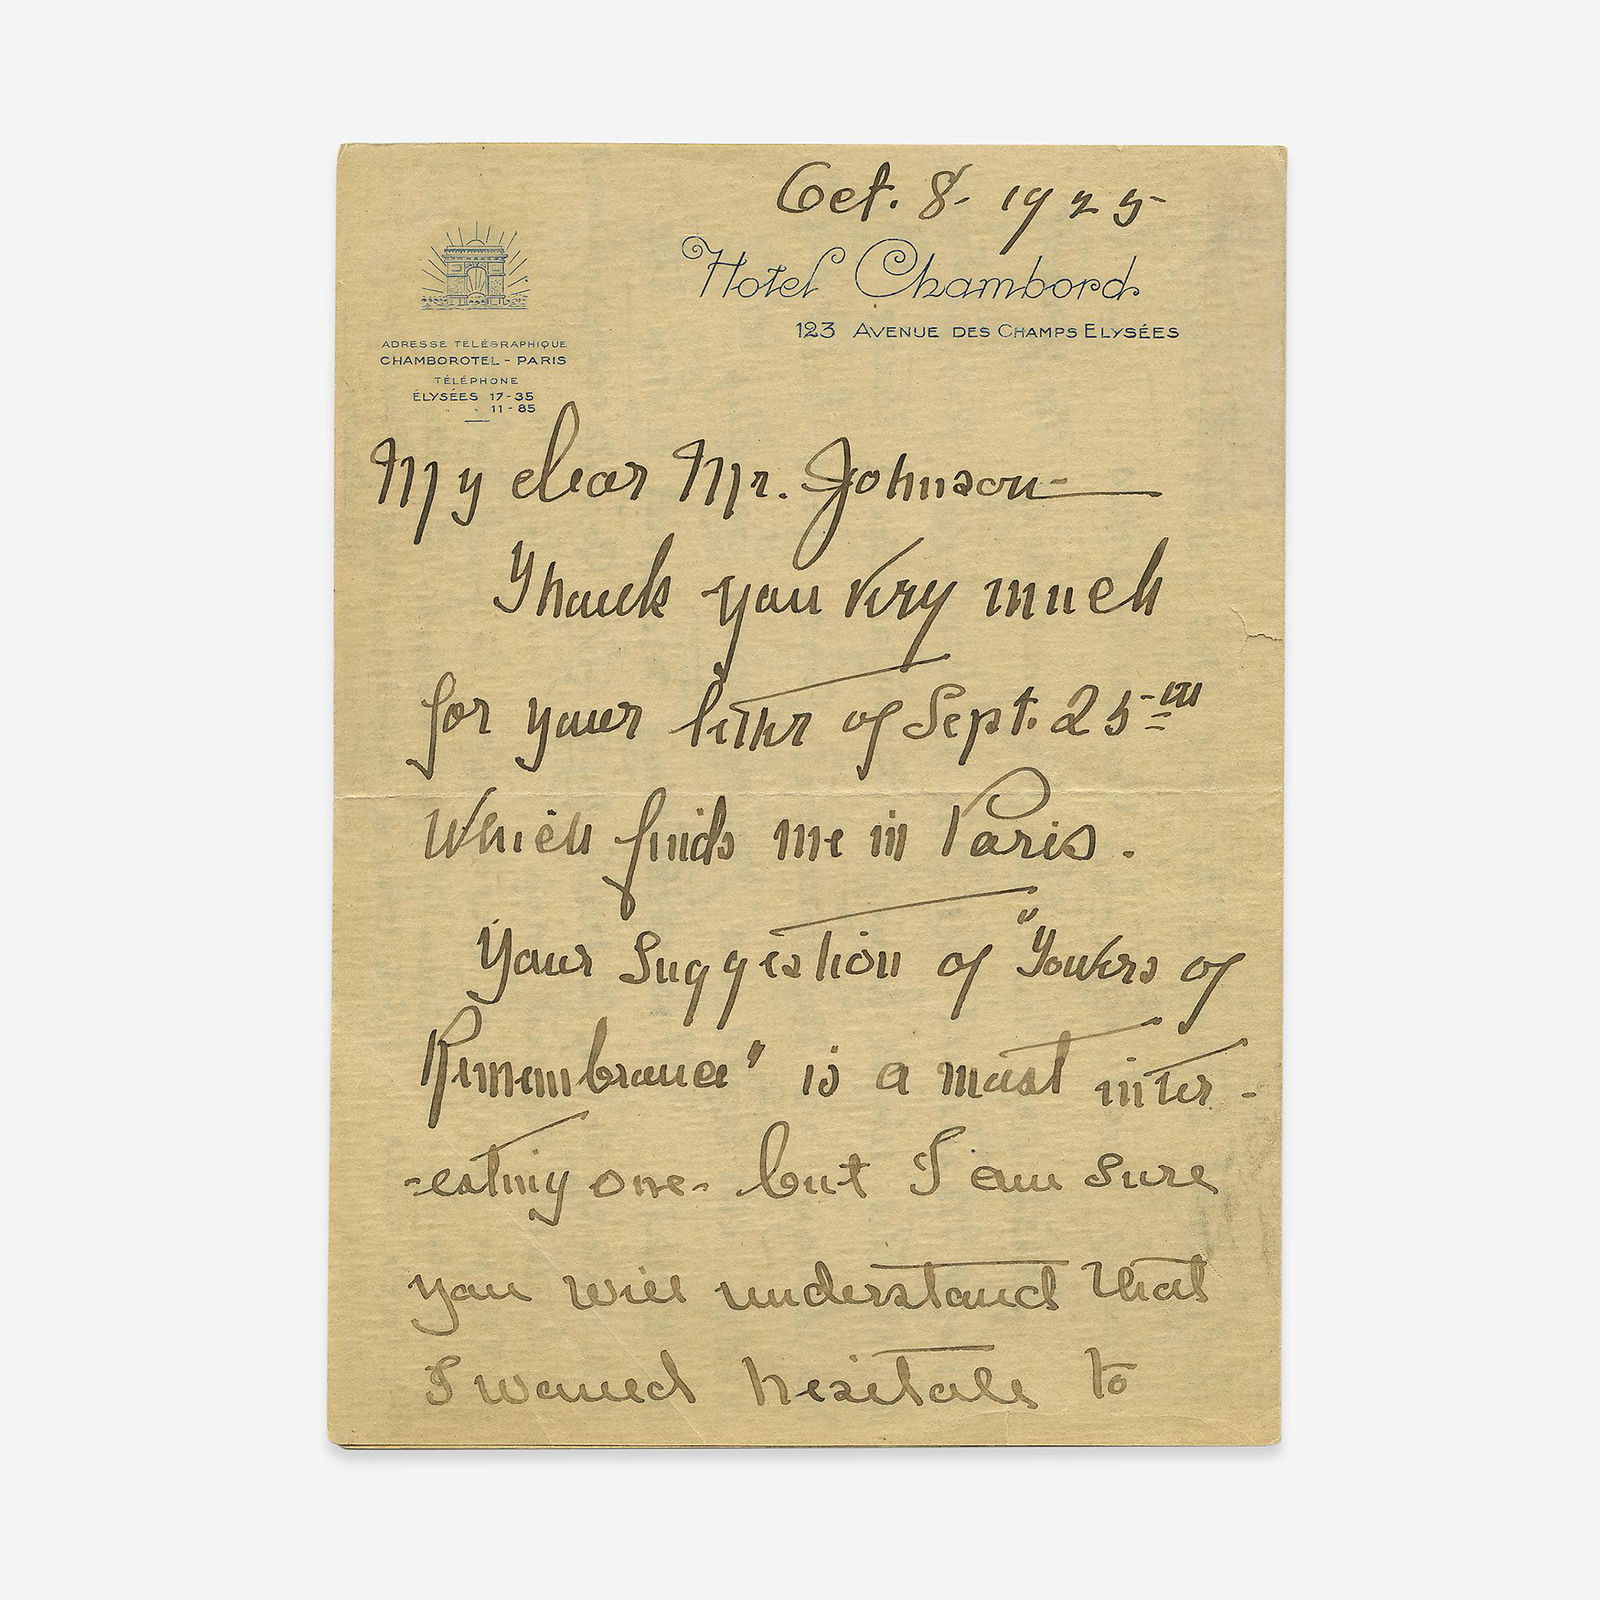 Oct. 8- 1925
Hotel Chambord
123 AVENUE DES CHAMPS ELYSÉES
ADRESSE TÉLÉGRAPHIQUE
CHAMBOROTEL - PARIS
TÉLÉPHONE
ÉLYSÉES 17-35
" " 11-85
My dear Mr. Johnson-
Thank you very much
for your letter of Sept. 25th
which finds me in Paris.
Your suggestion of "Towers of
Remembrance" is a most inter-
-esting one- but I am sure
you will understand that
I would hesitate to